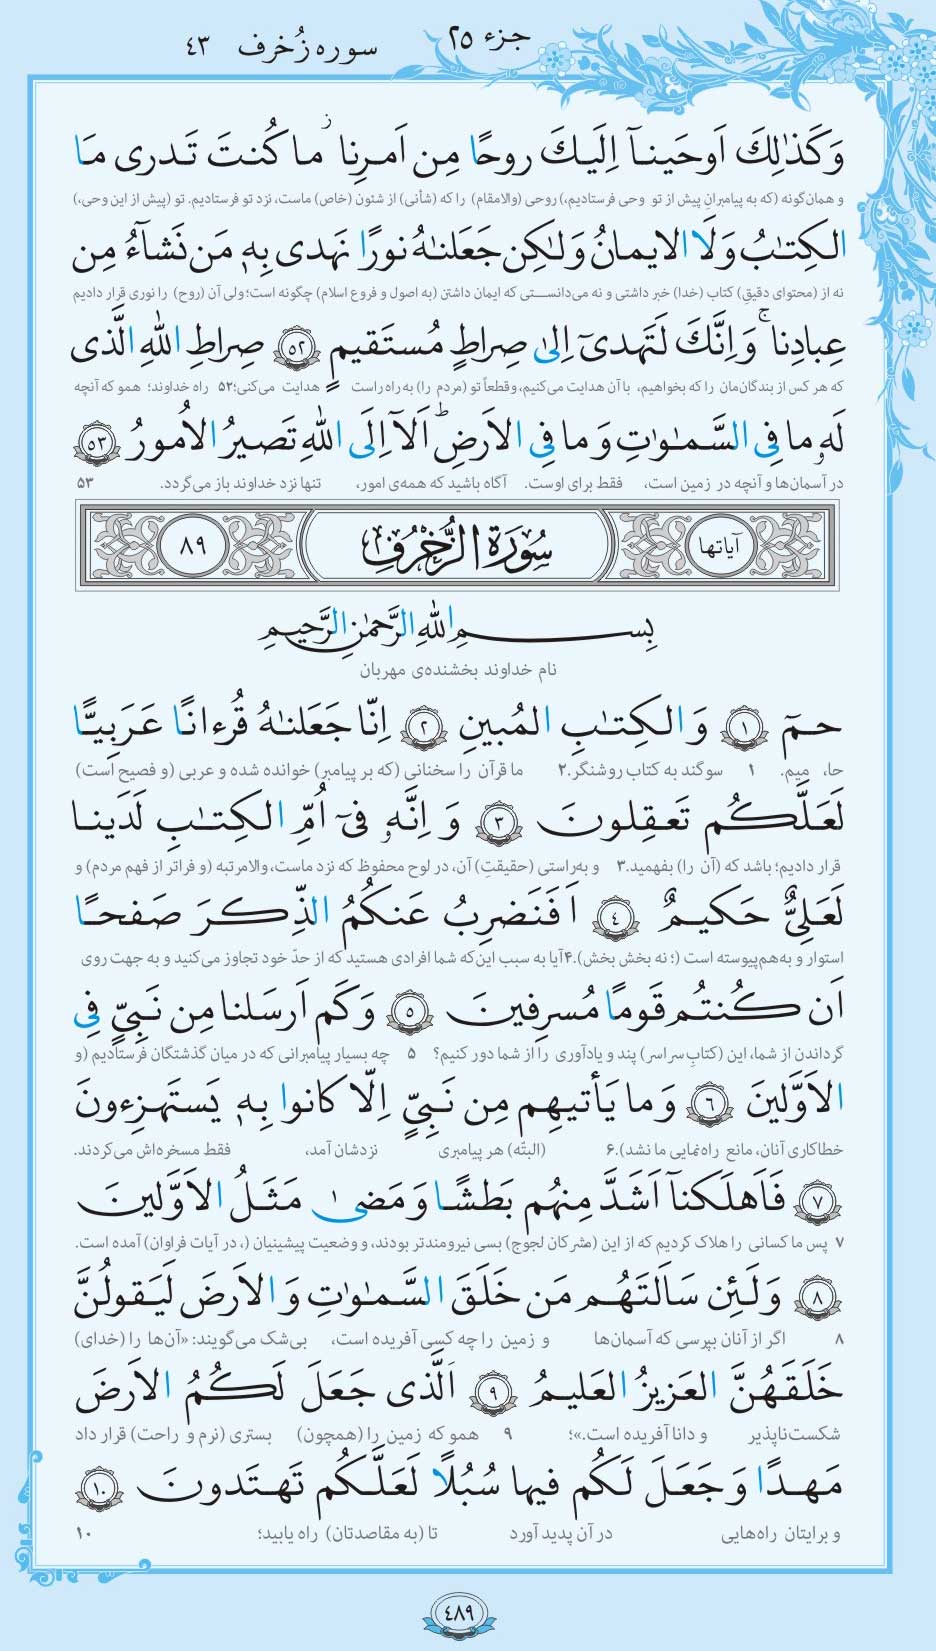 جزء ۲۵ سوره زُخرف ۴۳
وَ كَذٰلِكَ اَوحَينآ اِلَيكَ روحًا مِن اَمرِنا ۚ ما كُنتَ تَدرى مَا
و همان‌گونه (که به پیامبران پیش از تو وحی فرستادیم،) روحی (والامقام) را که (شأنی) از شئون (خاص) ماست، نزد تو فرستادیم. تو (پیش از این وحی،)
الكِتٰبُ وَلَا الايمانُ وَلٰكِن جَعَلنٰهُ نورًا نَهدى بِهٖ مَن نَشآءُ مِن
نه از (محتوای دقیقِ) کتاب (خدا) خبر داشتی و نه می‌دانستی که ایمان داشتن (به اصول و فروع اسلام) چگونه است؛ ولی آن (روح) را نوری قرار دادیم
عِبادِنا ۚ وَ اِنَّكَ لَتَهدىٓ اِلىٰ صِراطٍ مُستَقيمٍ ﴿۵۲﴾ صِراطِ اللهِ الَّذى
که هر کس از بندگان‌مان را که بخواهیم، با آن هدایت می‌کنیم، و قطعاً تو (مردم را) به راه راست هدایت می‌کنی؛۵۲ راه خداوند؛ همو که آنچه
لَهٗ ما فِى السَّمٰوٰتِ وَ ما فِى الاَرضِ ؕ اَلآ اِلَى اللهِ تَصيرُ الاُمورُ ﴿۵۳﴾
در آسمان‌ها و آنچه در زمین است، فقط برای اوست. آگاه باشید که همه‌ی امور، تنها نزد خداوند باز می‌گردد. ۵۳
آیاتها سُورَةُ الزُّخْرُفِ ۸۹
بِسمِ اللهِ الرَّحمٰنِ الرَّحيمِ
نام خداوند بخشنده‌ی مهربان
حمٓ ﴿۱﴾ وَ الكِتٰبِ المُبينِ ﴿۲﴾ اِنّا جَعَلنٰهُ قُرءانًا عَرَبِيًّا
حا، میم. ۱ سوگند به کتاب روشنگر.۲ ما قرآن را سخنانی (که بر پیامبر) خوانده شده و عربی (و فصیح است)
لَعَلَّكُم تَعقِلونَ ﴿۳﴾ وَ اِنَّهٗ فىٓ اُمِّ الكِتٰبِ لَدَينا
قرار دادیم؛ باشد که (آن را) بفهمید.۳ و به‌راستی (حقیقتِ) آن، در لوح محفوظ که نزد ماست، والامرتبه (و فراتر از فهم مردم) و
لَعَلِىٌّ حَكيمٌ ﴿۴﴾ اَفَنَضرِبُ عَنكُمُ الذِّكرَ صَفحًا
استوار و به‌هم‌پیوسته است (؛ نه بخش بخش).۴ آیا به سبب این‌که شما افرادی هستید که از حدّ خود تجاوز می‌کنید و به جهت روی
اَن كُنتُم قَومًا مُسرِفينَ ﴿۵﴾ وَ كَم اَرسَلنا مِن نَبِىٍّ فِى
گرداندن از شما، این (کتابِ سراسر) پند و یادآوری را از شما دور کنیم؟ ۵ چه بسیار پیامبرانی که در میان گذشتگان فرستادیم (و
الاَوَّلينَ ﴿۶﴾ وَ ما يَأتيهِم مِن نَبِىٍّ اِلّا كانوا بِهٖ يَستَهزِءونَ
خطاکاری آنان، مانع راه‌نمایی ما نشد).۶ (البتّه) هر پیامبری نزدشان آمد، فقط مسخره‌اش می‌کردند.
﴿۷﴾ فَاَهلَكنآ اَشَدَّ مِنهُم بَطشًا وَ مَضىٰ مَثَلُ الاَوَّلينَ
۷ پس ما کسانی را هلاک کردیم که از این (مشرکان لجوج) بسی نیرومندتر بودند، و وضعیت پیشینیان (، در آیات فراوان) آمده است.
﴿۸﴾ وَ لَئِن سَاَلتَهُم مَن خَلَقَ السَّمٰوٰتِ وَ الاَرضَ لَيَقولُنَّ
۸ اگر از آنان بپرسی که آسمان‌ها و زمین را چه کسی آفریده است، بی‌شک می‌گویند: «آن‌ها را (خدای)
خَلَقَهُنَّ العَزيزُ العَليمُ ﴿۹﴾ اَلَّذى جَعَلَ لَكُمُ الاَرضَ
شکست‌ناپذیر و دانا آفریده است.»؛ ۹ همو که زمین را (همچون) بستری (نرم و راحت) قرار داد
مَهدًا وَ جَعَلَ لَكُم فيها سُبُلًا لَعَلَّكُم تَهتَدونَ ﴿۱۰﴾
و برایتان راه‌هایی در آن پدید آورد تا (به مقاصدتان) راه یابید؛ ۱۰
۴۸۹